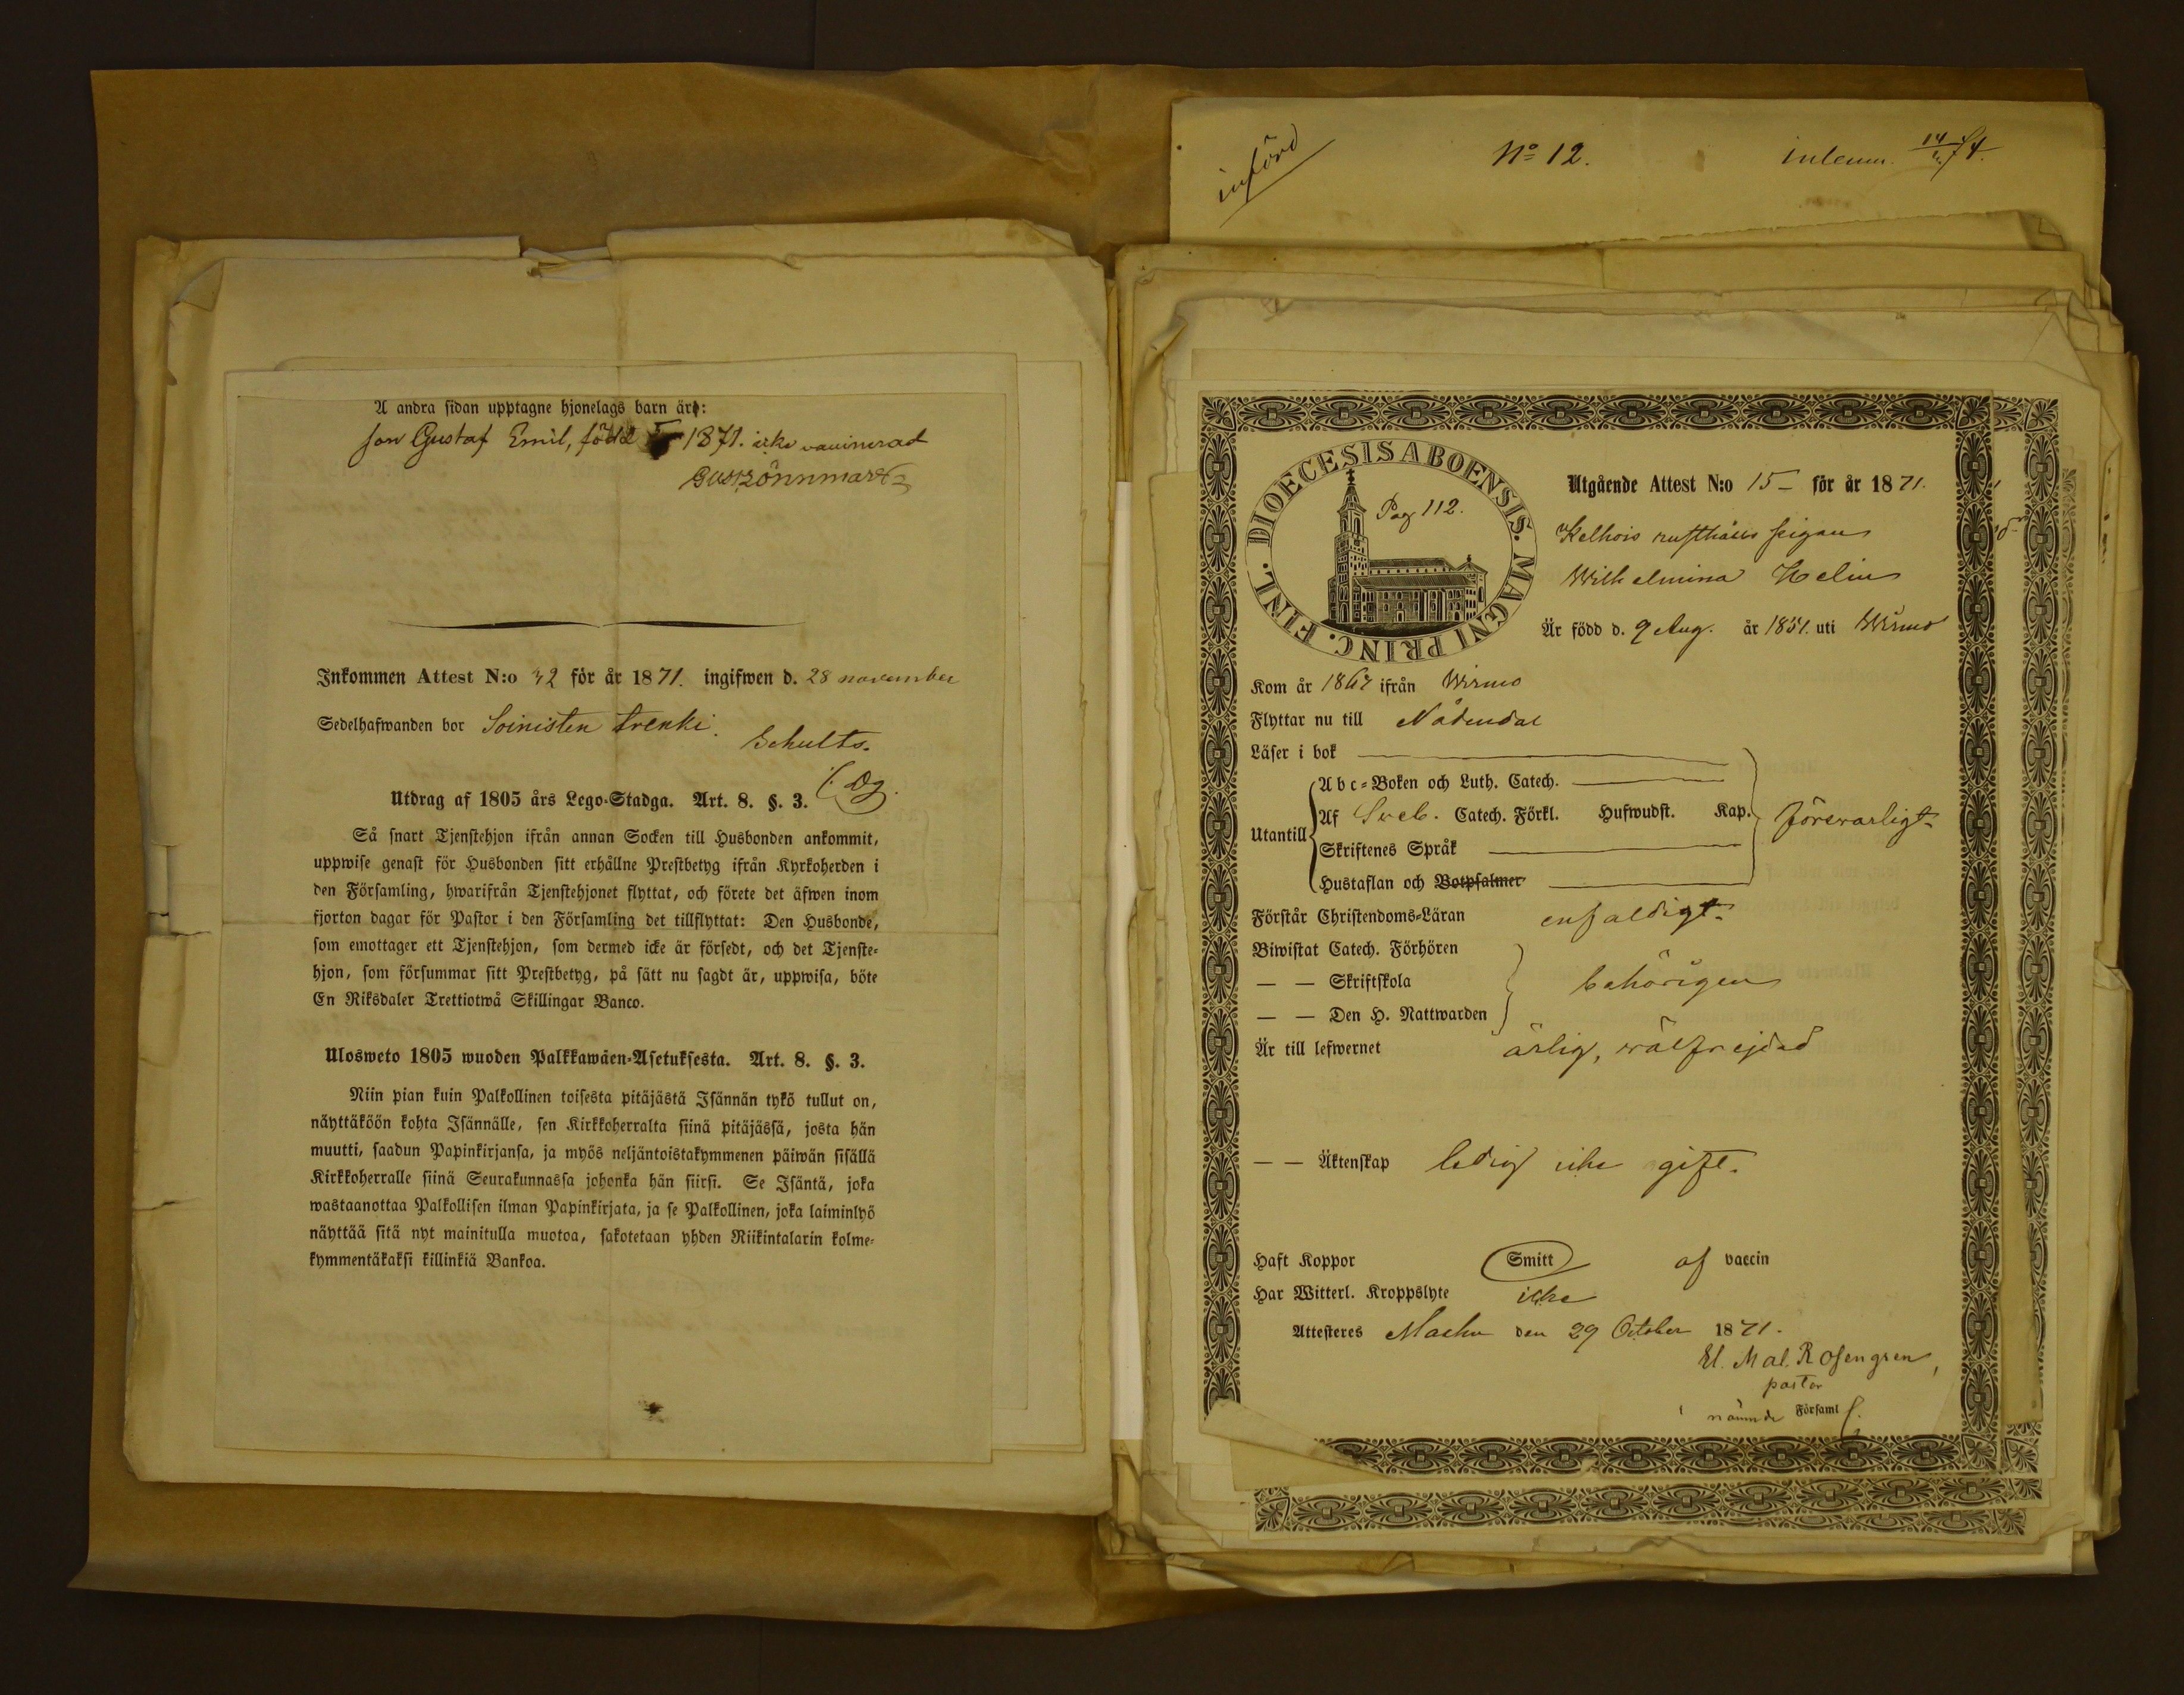 A andra sidan upptagne hjonelags barn är:
son Gustaf Emil, född 1871. icke vaccinerad
Inkommen Attest N:o 32 för år 1871. ingifwen d. 28 november
Sedelhafwanden bor Soinisten trenki.
Schults.
Utdrag af 1805 års Lego-Stadga. Art. 8. §. 3.
Så snart Tjenstehjon ifrån annan Socken till Husbonden ankommit,
uppwise genast för Husbonden sitt erhållne Prestbetyg ifrån Kyrkoherden i
den Församling, hwarifrån Tjenstehjonet flyttat, och förete det äfwen inom
fjorton dagar för Pastor i den Församling det tillflyttat: Den Husbonde,
som emottager ett Tjenstehjon, som dermed icke är försedt, och det Tjenste-
hjon, som försummar sitt Prestbetyg, på sätt nu sagdt är, uppwisa, böte
En Riksdaler Trettiotwå Skillingar Banco.
Ulosweto 1805 wuoden Palkkawäen-Asetuksesta. Art. 8. §. 3.
Niin pian kuin Palkollinen toisesta pitäjästä Isännän tykö tullut on,
näyttäköön kohta Isännälle, sen Kirkkoherralta siinä pitäjässä, josta hän
muutti, saadun Papinkirjansa, ja myös neljäntoistakymmenen päiwän sisällä
Kirkkoherralle siinä Seurakunnassa johonka hän siirsi. Se Isäntä, joka
wastaanottaa Palkollisen ilman Papinkirjata, ja se Palkollinen, joka laiminlyö
näyttää sitä nyt mainitulla muotoa, sakotetaan yhden Riikintalarin kolme-
kymmentäkaksi killinkiä Bankoa.
införd
No 12.
inlemn. 14/74.
DIOECESIS ABOENSIS. MAGNI PRINC. FINL.
Pag 112.
Utgående Attest N:o 15 för år 1871.
Kelhois rusthålls pigan
Wilhelmina Helin
Är född d. 9 Aug. år 1851. uti Wirmo
Kom år 1867 ifrån Wirmo
Flyttar nu till Nådendal
Läser i bok
Utantill
Abc-Boken och Luth. Catech.
Af Sveb. Catech. Förkl. Hufwudst. Kap.
försvarligt.
Skriftenes Språk
Hustaflan och Botpsalmer
Förstår Christendoms-Läran enfaldigt.
Biwistat Catech. Förhören
— — Skriftskola behörigen
— — Den H. Nattwarden
Är till lefwernet ärlig, välfrejdad
— — Äktenskap ledig icke gift.
Haft Koppor Smitt af vaccin
Har Witterl. Kroppslyte icke
Attesteres Masku den 29 October 1871.
El. Mal. Rosengren,
pastor
i nämnde Församl.